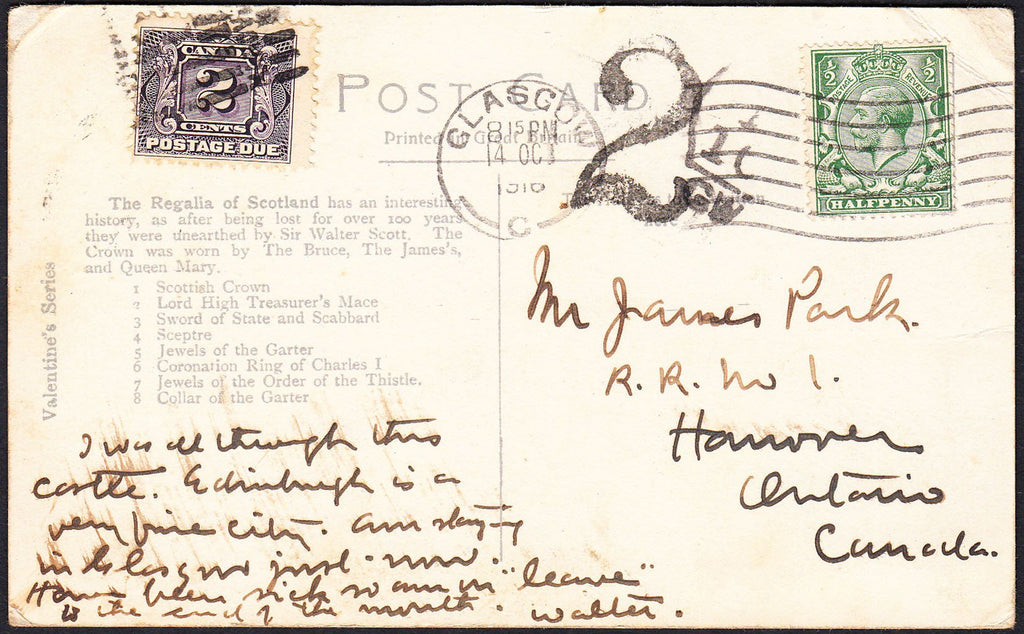 CANADA
2
CENTS
POSTAGE DUE
POST CARD
Printed in Great Britain
GLASGOW
8.15 PM
14 OCT
1916
C
2
½ ½
HALFPENNY
The Regalia of Scotland has an interesting
history, as after being lost for over 100 years
they were unearthed by Sir Walter Scott. The
Crown was worn by The Bruce, The James's,
and Queen Mary.
1 Scottish Crown
2 Lord High Treasurer's Mace
3 Sword of State and Scabbard
4 Sceptre
5 Jewels of the Garter
6 Coronation Ring of Charles I
7 Jewels of the Order of the Thistle.
8 Collar of the Garter
Valentine's Series
I was all through this
castle. Edinburgh is a
very fine city. Am staying
in Glasgow just now.
Have been sick so am on "leave"
to the end of the month. Walter.
Mr James Park.
R. R. No 1.
Hanover
Ontario
Canada.